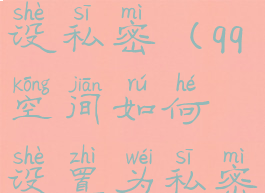 shè sī mì
设私密(qq
kōng jiān rú hé
空间如何
shè zhì wéi sī mì
设置为私密